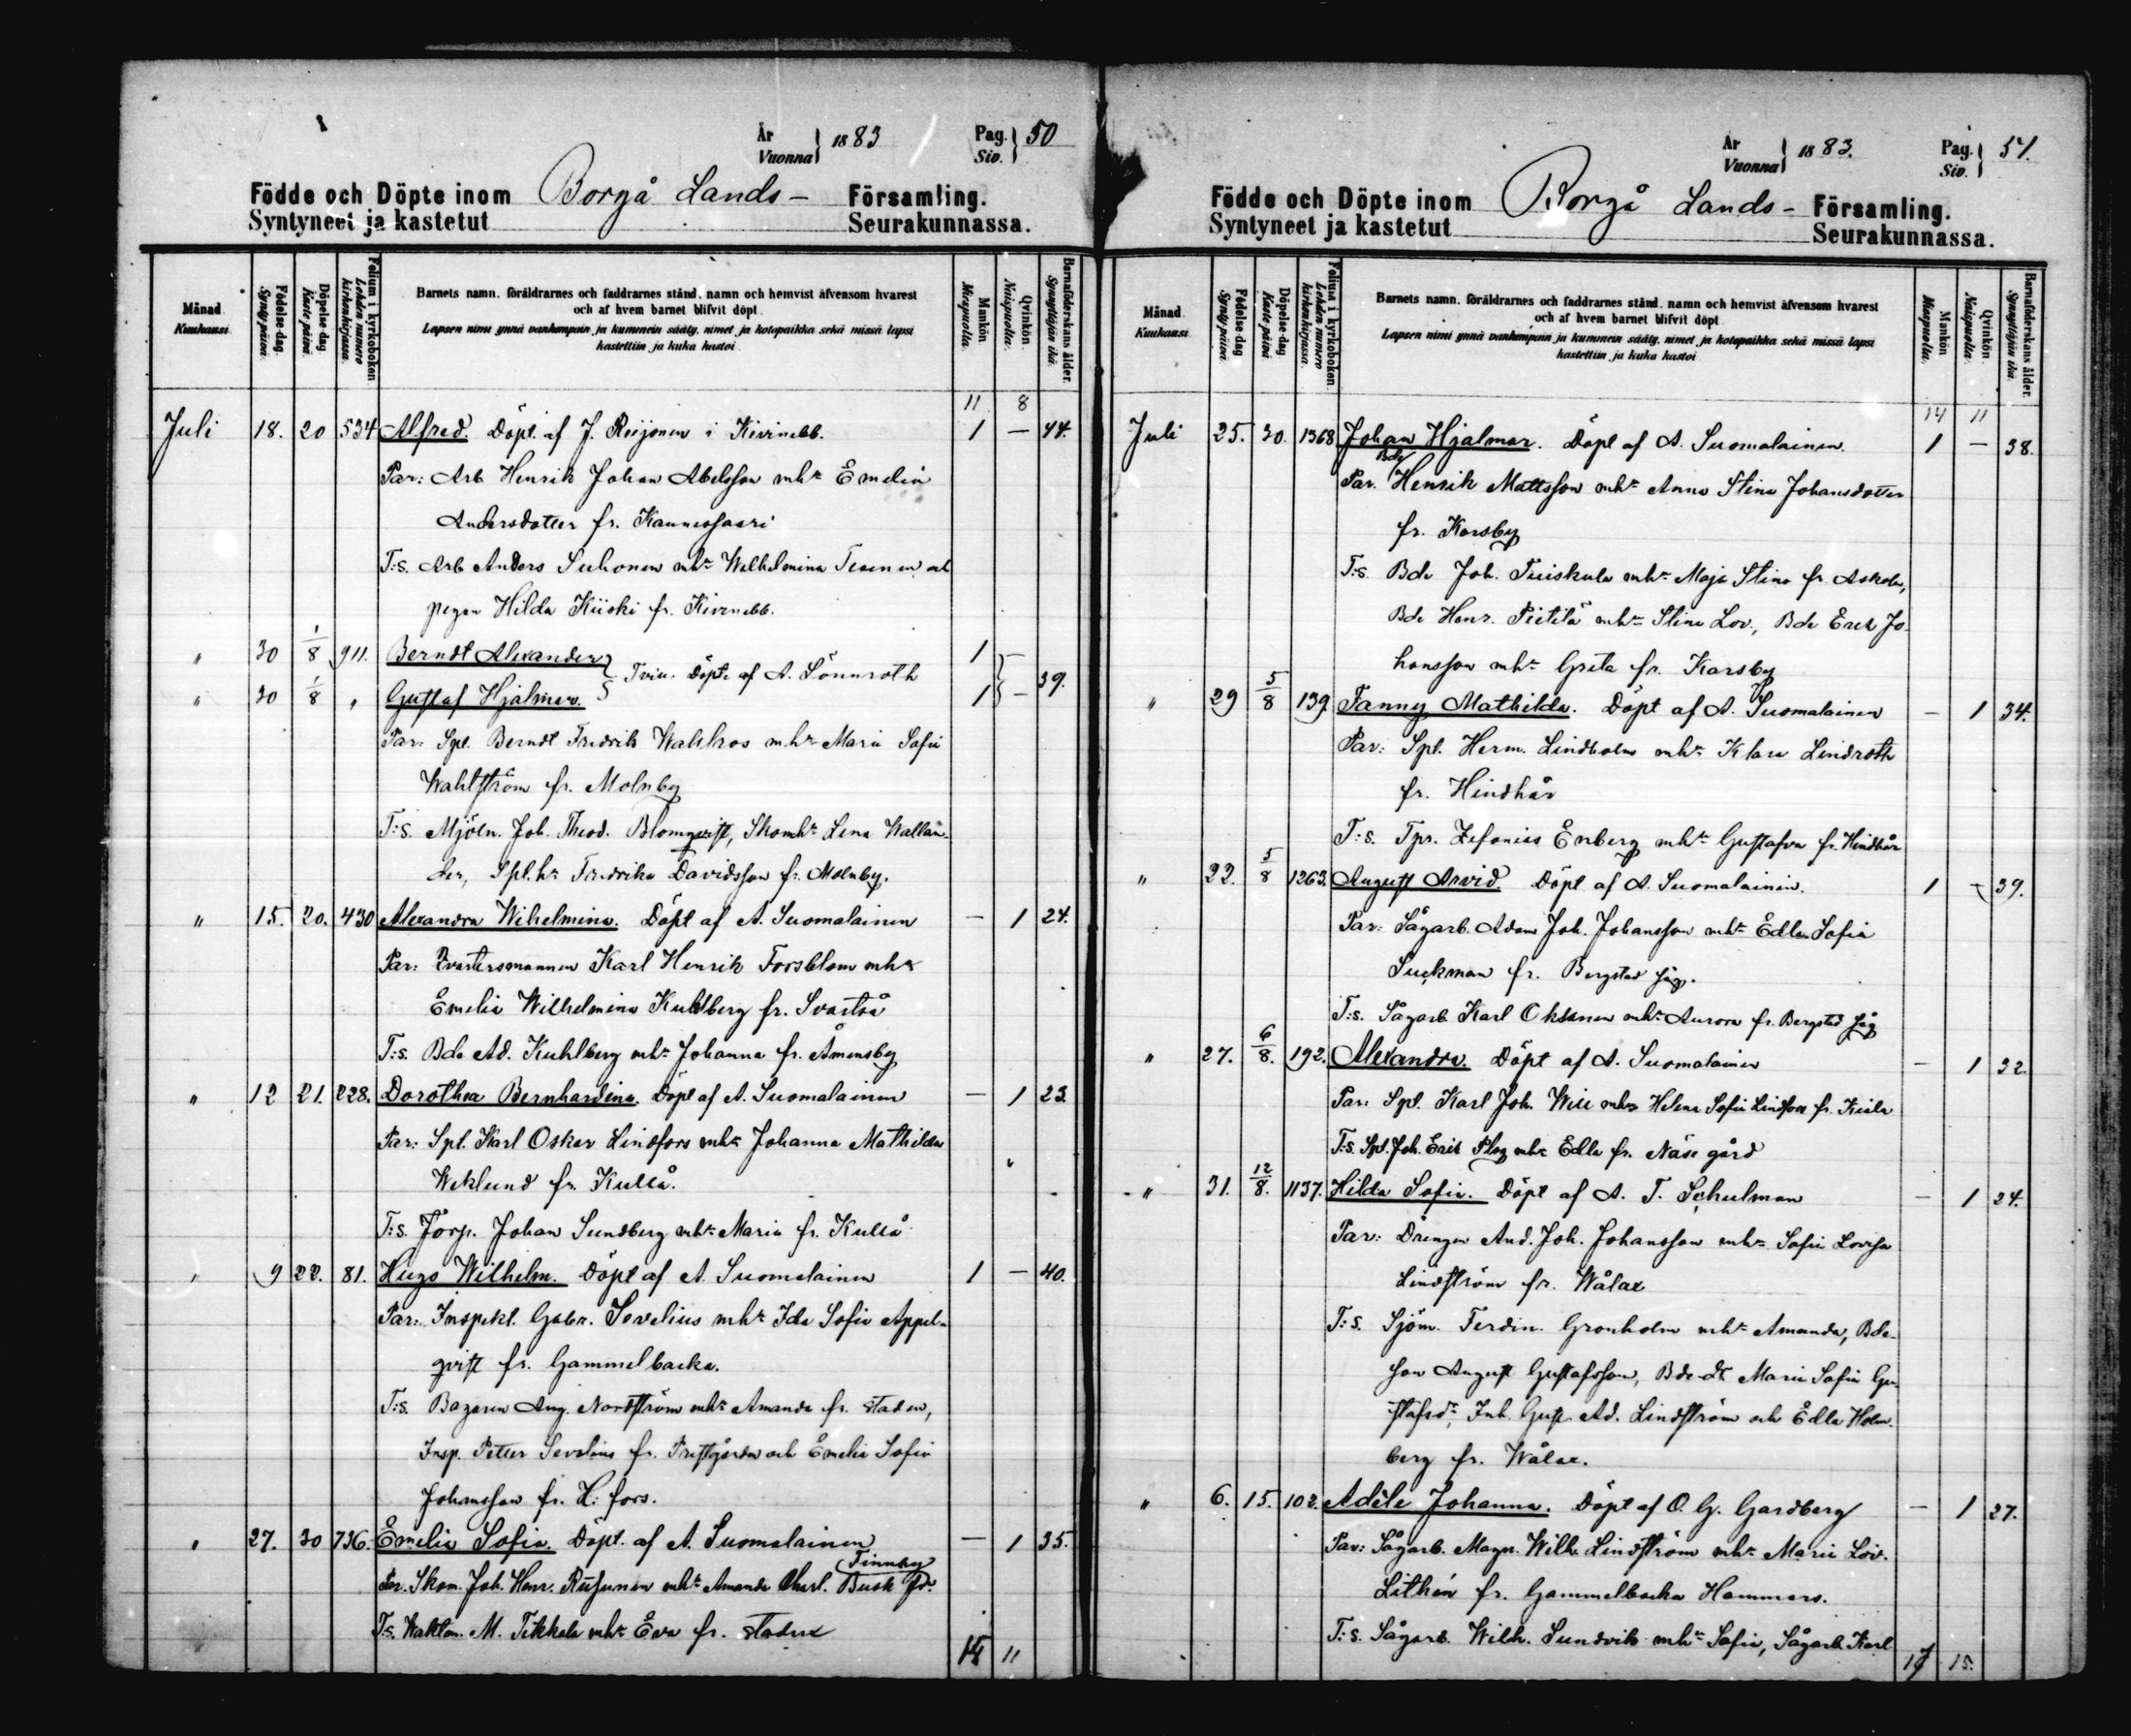 År
Vuonna 1883
Pag.
Siv. 50
Födde och Döpte inom Borgå Lands- Församling.
Syntyneet ja kastetut Seurakunnassa.
Månad Kuukausi
Födelse-dag Syntypäivä.
Döpelse-dag Kastepäivä
Folium i kyrkoboken Lehden numero kirkonkirjassa.
Barnets namn, föräldrarnes och faddrarnes stånd, namn och hemvist äfvensom hvarest
och af hvem barnet blifvit döpt.
Lapsen nimi ynnä vanhempain ja kummein sääty, nimet ja kotopaikka sekä missä lapsi
kastettiin ja kuka kastoi
Mankön Miespuolta.
Qvinkön Naispuolta.
Barnaföderskans ålder. Synnyttäjän ikä.
11 8
Juli 18. 20 534 Alfred. Döpt af J. Reijonen i Kivinebb. 1 — 44.
Par: Arb Henrik Johan Abelsson mhr Emelia
Andersdotter fr. Kannessaari
T:s. Arb Anders Suhonen mhr Wilhelmina Tiainen och
pigan Hilda Kiiski fr. Kivinebb.
" 30 1/8 911. Berndt Alexander 1 —
Tvill. Döpte af A. Lönnroth 39.
" 30 1/8 " Gustaf Hjalmar. 1 —
Par: Spl. Berndt Fredrik Wahlroos mhr Maria Sofia
Wahlström fr. Molnby
T:s. Mjöln. Joh. Theod. Blomqvist, Skomhr Lena Wallan-
der, Spl.hr Fredrika Davidsson fr. Molnby.
" 15. 20. 430 Alexandra Wilhelmina. Döpt af A. Suomalainen — 1 24.
Par: Qvartersmannen Karl Henrik Forsblom mhr
Emelia Wilhelmina Kuhlberg fr. Svartså
T:s. Bde Ad. Kuhlberg mhr Johanna fr. Åmmsby
" 12 21. 228. Dorothea Bernhardina. Döpt af A. Suomalainen — 1 23
Par: Spl. Karl Oskar Lindfors mhr Johanna Mathilda
Weklund fr. Kullå.
T:s. Torp. Johan Sundberg mhr Maria fr. Kullå
" 9 22. 81. Hugo Wilhelm. Döpt af A. Suomalainen 1 — 40.
Par: Inspekt. Gabr. Sevelius mhr Ida Sofia Appel-
qvist fr. Gammelbacka.
T:s. Bagaren Aug. Nordström mhr Amanda fr. staden,
Insp. Petter Sevelius fr. Prestgården och Emelie Sofia
Johansson fr. H:fors.
" 27. 30 736. Emelia Sofia. Döpt af A. Suomalainen — 1 35.
Finnby
Par. Skom. Joh. Henr. mhr Amanda Charl. Busk fr.
T:s. Waktm. M. Tikkala mhr Eva fr. staden
14 11
År
Vuonna 1883.
Pag.
Siv. 51.
Födde och Döpte inom Borgå Lands- Församling.
Syntyneet ja kastetut Seurakunnassa.
Månad Kuukausi
Födelse-dag Syntypäivä.
Döpelse-dag Kastepäivä
Folium i kyrkoboken Lehden numero kirkonkirjassa.
Barnets namn, föräldrarnes och faddrarnes stånd, namn och hemvist äfvensom hvarest
och af hvem barnet blifvit döpt
Lapsen nimi ynnä vanhempain ja kummein sääty, nimet ja kotopaikka sekä missä lapsi
kastettiin ja kuka kastoi
Mankön Miespuolta.
Qvinkön Naispuolta.
Barnaföderskans ålder. Synnyttäjän ikä.
14 11
Juli 25. 30. 1368 Johan Hjalmar. Döpt af A. Suomalainen. 1 — 38.
Bde
Par. Henrik Mattsson mhr Anna Stina Johansdotter
fr. Karsby
T:s. Bde Joh. Tuiskula mhr Maja Stina fr. Askola,
Bde Henr. Pietilä mhr Stina Lov., Bde Erik Jo-
hansson mhr Greta fr. Karsby
" 29 5/8 139. Fanny Mathilda. Döpt af A. Suomalainen — 1 34.
Par: Spl. Herm. Lindholm mhr Klara Lindroth
fr. Hindhår
T:s. Tpr. Zefanias Enberg mhr Gustafva fr. Hindhår
" 22. 5/8 1263. August Arvid. Döpt af A. Suomalainen. 1 — 39.
Par: Sågarb. Adam Joh. Johansson mhr Edla Sofia
Suckman fr. Bergstad såg.
T:s. Sågarb. Karl Oksanen mhr Aurora fr. Bergstad såg
" 27. 6/8. 192. Alexandra. Döpt af A. Suomalainen — 1 32
Par: Spl. Karl Joh. Wiik mhr Helena Sofia Lindfors fr. Kiiala
T:s. Spl. Joh. Erik Plog mhr Edla fr. Näse gård
" 31. 12/8. 1137. Hilda Sofia. Döpt af A. T. Schulman — 1 24.
Par: Drängen And. Joh. Johansson mhr Sofia Lovisa
Lindström fr. Wålax
T:s. Sjöm. Ferdin. Gronholm mhr Amanda, Bde-
son August Gustafsson, Bde dr Maria Sofia Gu-
stafsdr, Inh. Gust. Ad. Lindström och Edla Holm-
berg fr. Wålax.
" 6. 15. 102. Adèle Johanna. Döpt af O. G. Gardberg — 1 27.
Par: Sågarb. Magn. Wilh. Lindström mhr Maria Lov.
Lithén fr. Gammelbacka Hammars.
T:s. Sågarb. Wilh. Sundvik mhr Sofia, Sågarb. Karl
15.